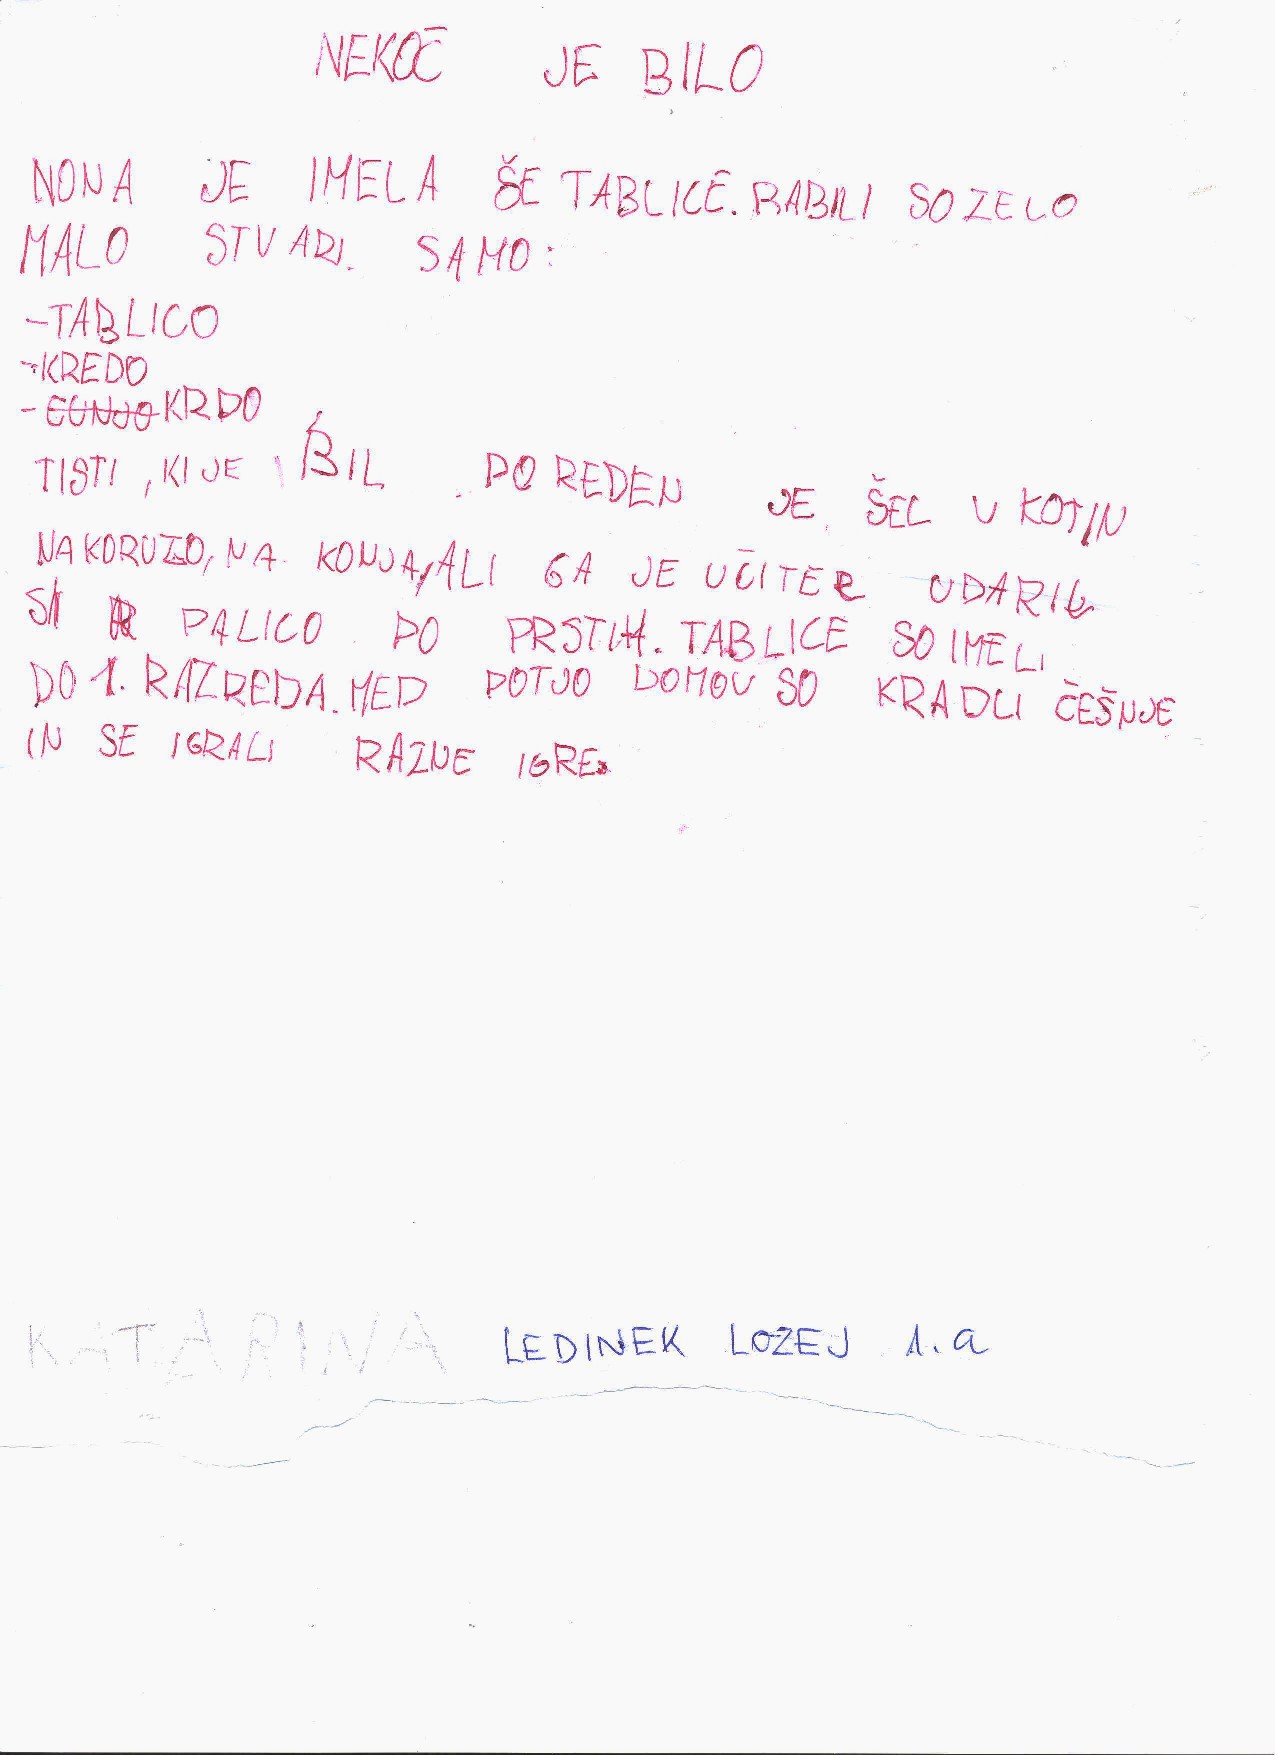 NEKOČ JE BILO
NONA JE IMELA ŠE TABLICE. RABILI SO ZELO
MALO STVARI. SAMO:
-TABLICO
-KREDO
- CUNJO KRDO
TISTI, KI JE BIL POREDEN JE ŠEL V KOT IN
NA KORUZO, NA KONJA, ALI GA JE UČITER UDARIL
S PALICO PO PRSTIH. TABLICE SO IMELI
DO 1. RAZREDA. MED POTJO DOMOV SO KRADLI ČEŠNJE
IN SE IGRALI RAZNE IGRE.
KATARINA LEDINEK LOZEJ 1.a